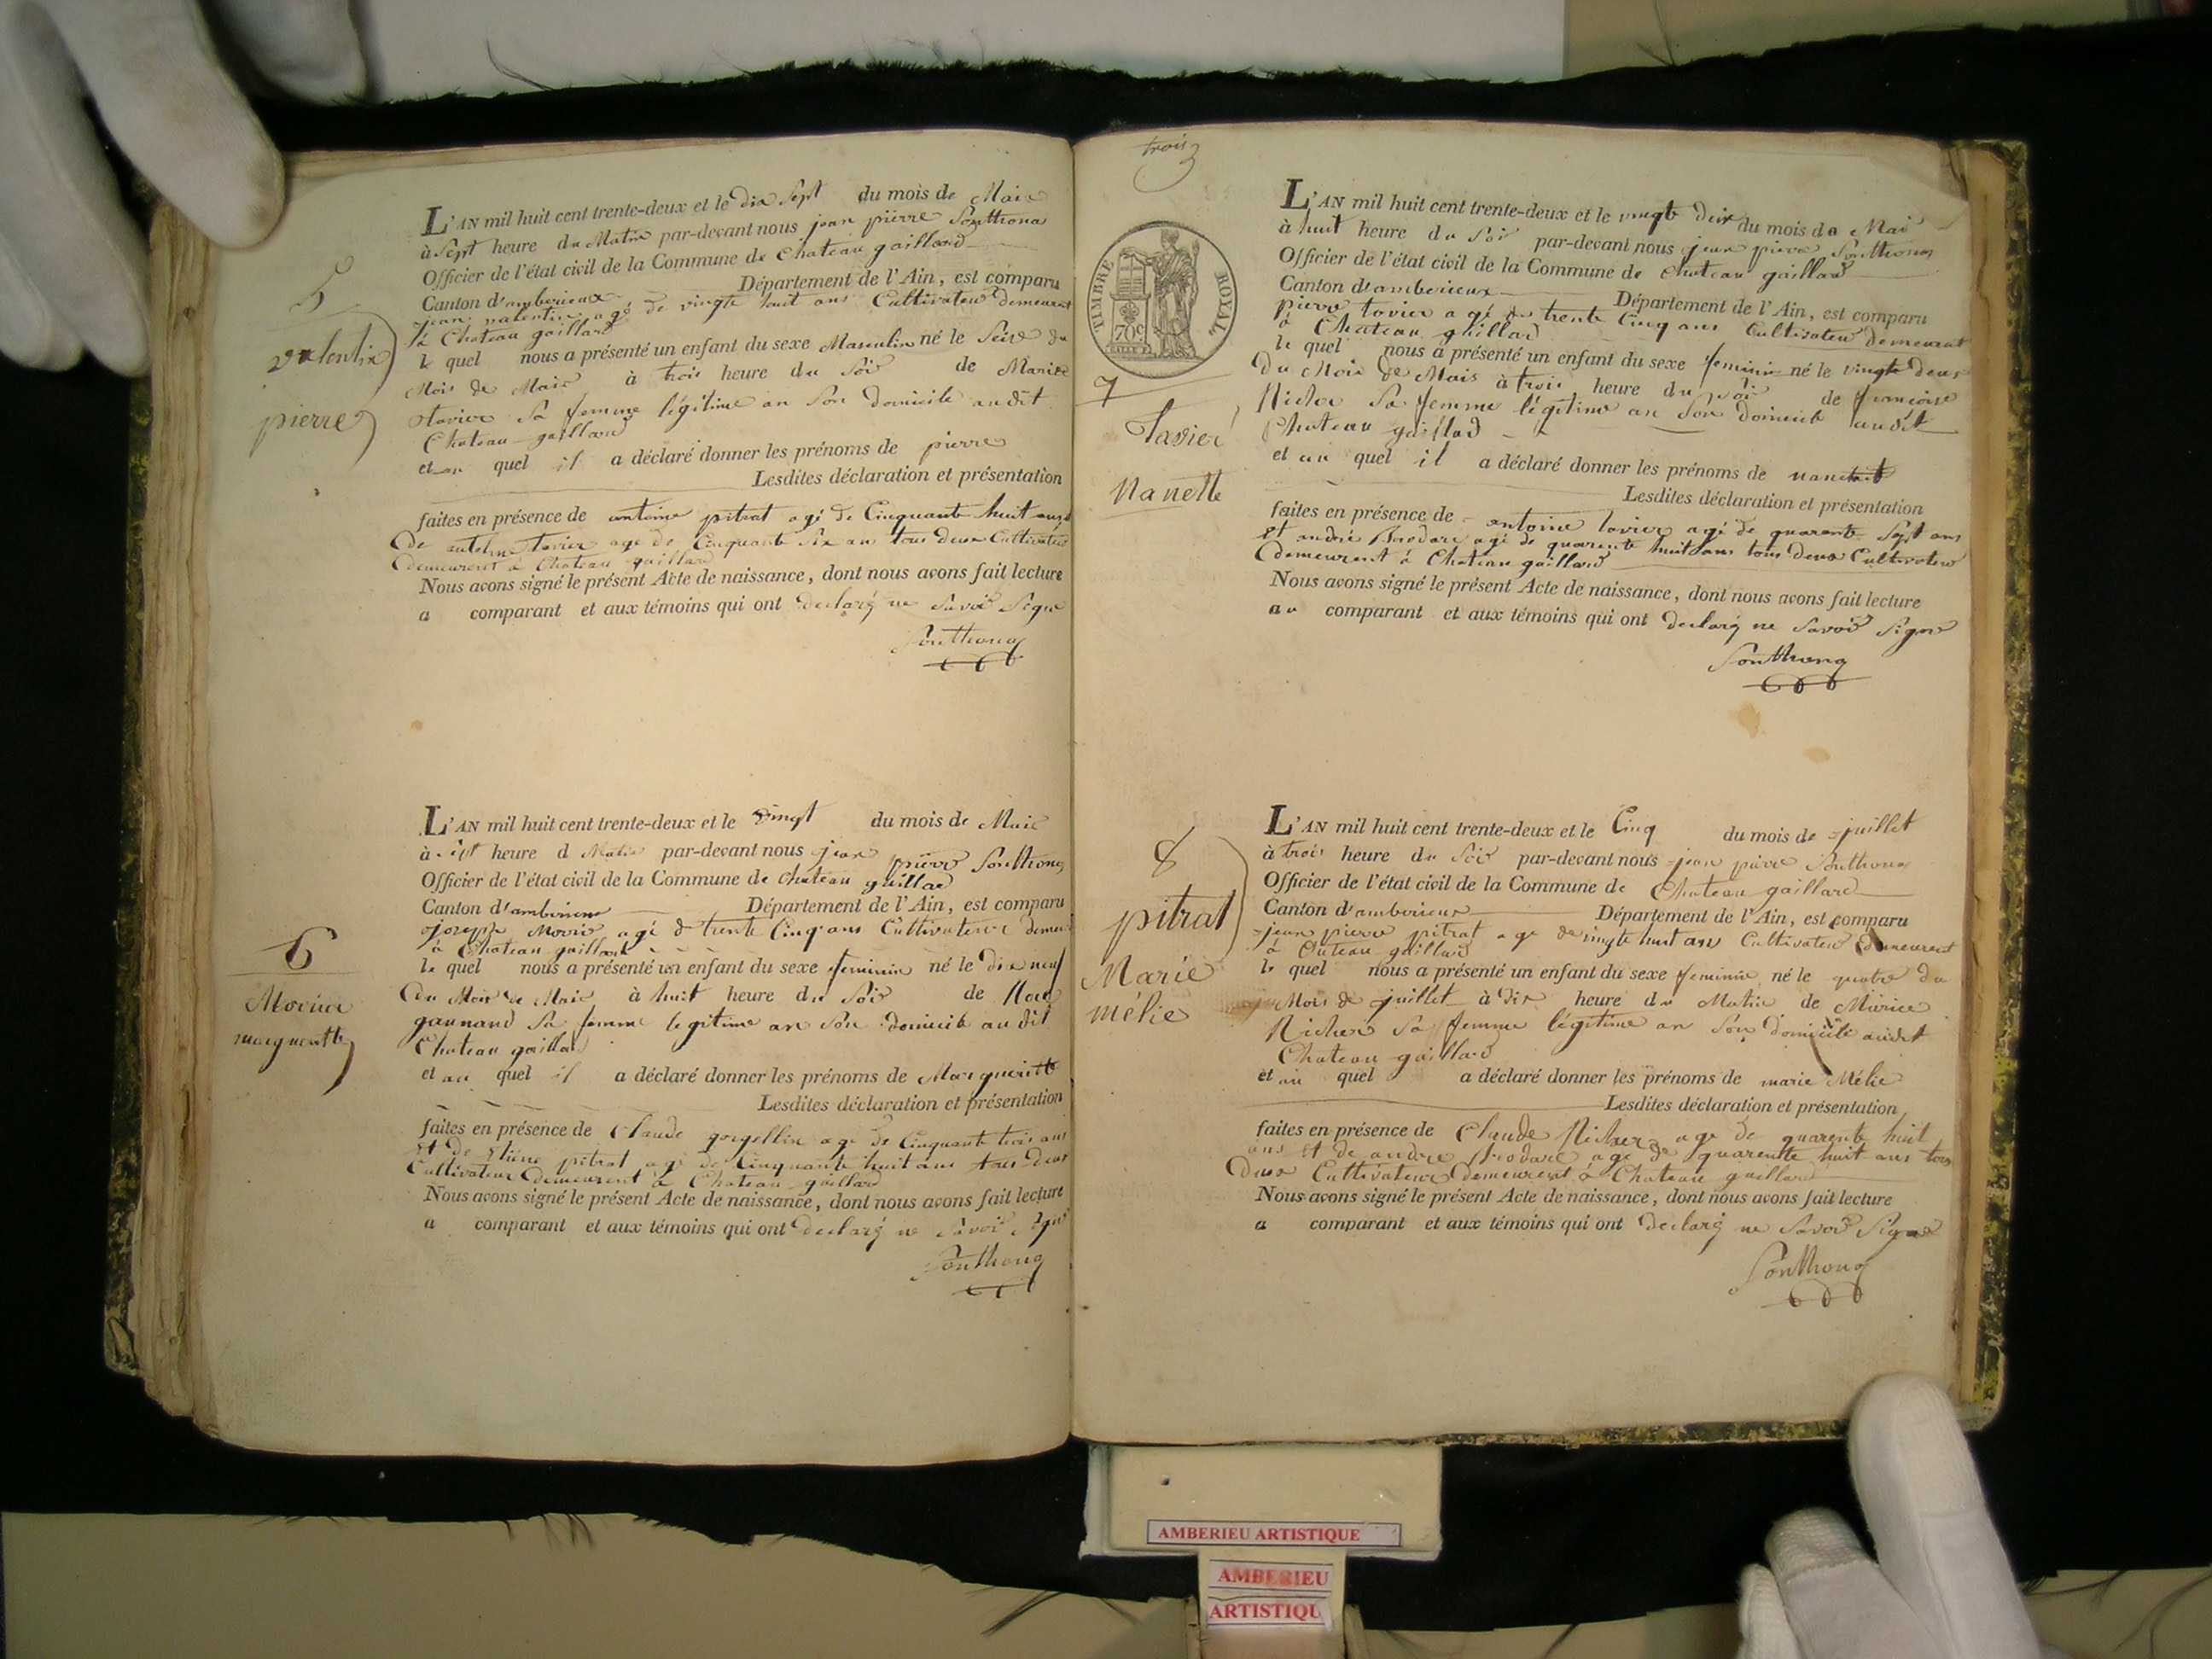 5
valentin
pierre
L'AN mil huit cent trente-deux et le dix Sept du mois de Mais
à Sept heure du Matin par-devant nous jean pierre Ponthona
Officier de l'état civil de la Commune de Chateau gaillard
Canton d'amberieux Département de l'Ain, est comparu
jean valentin agé de vingte huit ans Cultivateur demeurent
à Chateau gaillard
le quel nous a présenté un enfant du sexe Masculin né le Seize du
Mois de Mais à trois heure du Soir de Marie
tavier Sa femme légitime an Son domicile audit
Chateau gaillard
et au quel il a déclaré donner les prénoms de pierre
Lesdites déclaration et présentation
faites en présence de antoine pitrat agé de Cinquante huit ans
de tavier age de Cinquante Six ans tous deux Cultivateur
demeurent à Chateau gaillard
Nous avons signé le présent Acte de naissance, dont nous avons fait lecture
a comparant et aux témoins qui ont declaré ne Savoir Signe
Ponthona
6
marguerite
L'AN mil huit cent trente-deux et le vingt du mois de Mais
à Sept heure d Matin par-devant nous jean pierre Ponthona
Officier de l'état civil de la Commune de Chateau gaillard
Canton d'amberieux Département de l'Ain, est comparu
joseph agé de trente Cinq ans Cultivateur
à Chateau gaillard
le quel nous a présenté un enfant du sexe feminin né le dix neuf
du Mois de Mais à huit heure du Soir de
Sa femme legitime an Son domicile audit
Chateau gaillard
et au quel il a déclaré donner les prénoms de Marguerite
Lesdites déclaration et présentation
faites en présence de Claude age de Cinquante trois ans
et de pitrat agé de Cinquante huit ans tous deux
Cultivateur demeurent à Chateau gaillard
Nous avons signé le présent Acte de naissance, dont nous avons fait lecture
a comparant et aux témoins qui ont declaré ne Savoir
Ponthona
trois
TIMBRE ROYAL
70c
7
Tavier
Nanette
L'AN mil huit cent trente-deux et le vingte deux du mois de Mai
à huit heure du Soir par-devant nous jean pierre Ponthona
Officier de l'état civil de la Commune de Chateau gaillard
Canton d'amberieux Département de l'Ain, est comparu
pierre tavier agé de trente Cinq ans Cultivateur demeurent
à Chateau gaillard
le quel nous a présenté un enfant du sexe feminin né le vingte deux
du Mois de Mais à trois heure du Soir de francoise
Richer Sa femme légitime an Son domicile audit
Chateau gaillard
et au quel il a déclaré donner les prénoms de
Lesdites déclaration et présentation
faites en présence de antoine tavier agé de quarente Sept ans
et andré Brodare agé de quarente huit ans tous deux Cultivateur
demeurent à Chateau gaillard
Nous avons signé le présent Acte de naissance, dont nous avons fait lecture
au comparant et aux témoins qui ont declaré ne Savoir Signe
Ponthona
8
pitrat
Marie
mélie
L'AN mil huit cent trente-deux et le Cinq du mois de juillet
à trois heure du Soir par-devant nous jean pierre Ponthona
Officier de l'état civil de la Commune de Chateau gaillard
Canton d'amberieux Département de l'Ain, est comparu
jean pierre pitrat age de vingte huit ans Cultivateur demeurent
à Chateau gaillard
le quel nous a présenté un enfant du sexe feminin né le quatre du
Mois de juillet à dix heure du Matin de Marie
Richer Sa femme légitime an Son domicile audit
Chateau gaillard
et au quel a déclaré donner les prénoms de marie Mélie
Lesdites déclaration et présentation
faites en présence de Claude Richer age de quarente huit
ans et de andre Brodare age de quarente huit ans tous
deux Cultivateur demeurent à Chateau gaillard
Nous avons signé le présent Acte de naissance, dont nous avons fait lecture
a comparant et aux témoins qui ont declaré ne Savoir Signe
Ponthona
AMBERIEU ARTISTIQUE
AMBERIEU
ARTISTIQU